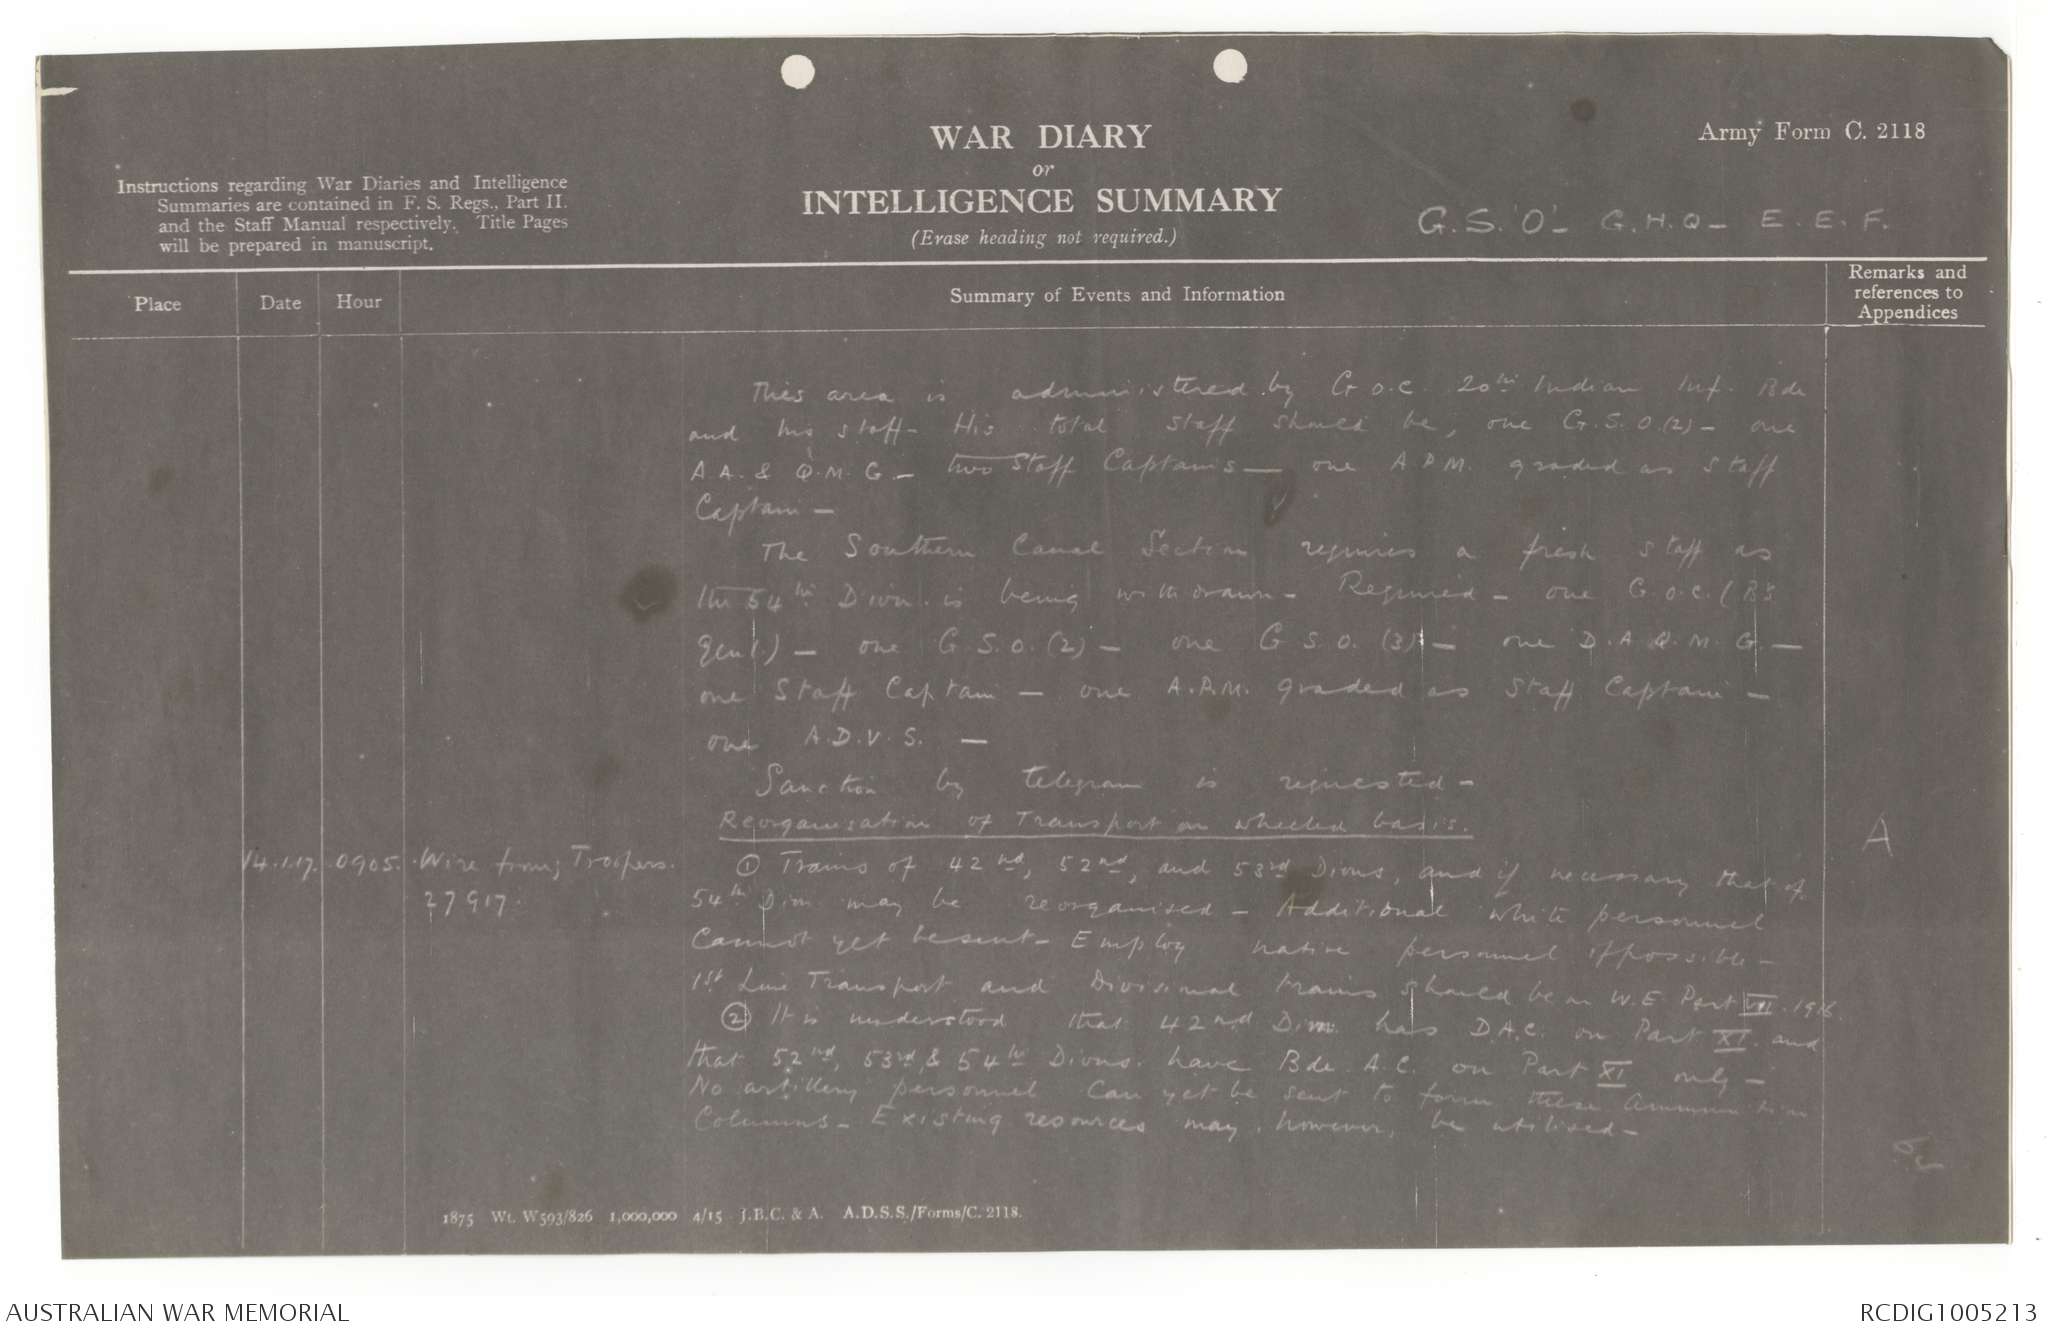 WAR DIARY
or
INTELLIGENCE SUMMARY
(Erase heading not required.)
Army Form C. 2118
Instructions regarding War Diaries and Intelligence
Summaries are contained in F. S. Regs., Part II.
and the Staff Manual respectively. Title Pages
will be prepared in manuscript.
G.S.'O'- G.H.Q- E.E.F.
Place
Date
Hour
Summary of Events and Information
Remarks and
references to
Appendices
This area is administered by G.O.C. 20th Indian Inf. Bde
and his staff- His total staff should be, one G.S.O.(2)- one
A.A. & Q.M.G.- two Staff Captains- one A.P.M. graded as Staff
Captain-
The Southern Canal Section requires a fresh staff as
the 54th Divn. is being withdrawn- Required- one G.O.C. (
Genl.)- one G.S.O.(2)- one G.S.O.(3)- one D.A.Q.M.G.-
one Staff Captain- one A.P.M. graded as Staff Captain-
one A.D.V.S.-
Sanction by telegram is requested-
Reorganisation of Transport on wheeled basis.
14.1.17. 0905. Wire from, Troopers.
27917.
① Trains of 42nd, 52nd, and 53rd Divns, and if necessary that of
54th Divn. may be reorganised- Additional white personnel
cannot yet be sent- Employ native personnel if possible-
1st Line Transport and Divisional trains should be on W.E. Part VII. 1916.
② It is understood that 42nd Divn. has D.A.C. on Part XI. and
that 52nd, 53rd, & 54th Divns. have Bde. A.C. on Part XI only-
No artillery personnel can yet be sent to form these Ammunition
Columns- Existing resources may, however, be utilised-
A
1875 Wt. W593/826 1,000,000 4/15 J.B.C. & A. A.D.S.S./Forms/C. 2118.
AUSTRALIAN WAR MEMORIAL
RCDIG1005213